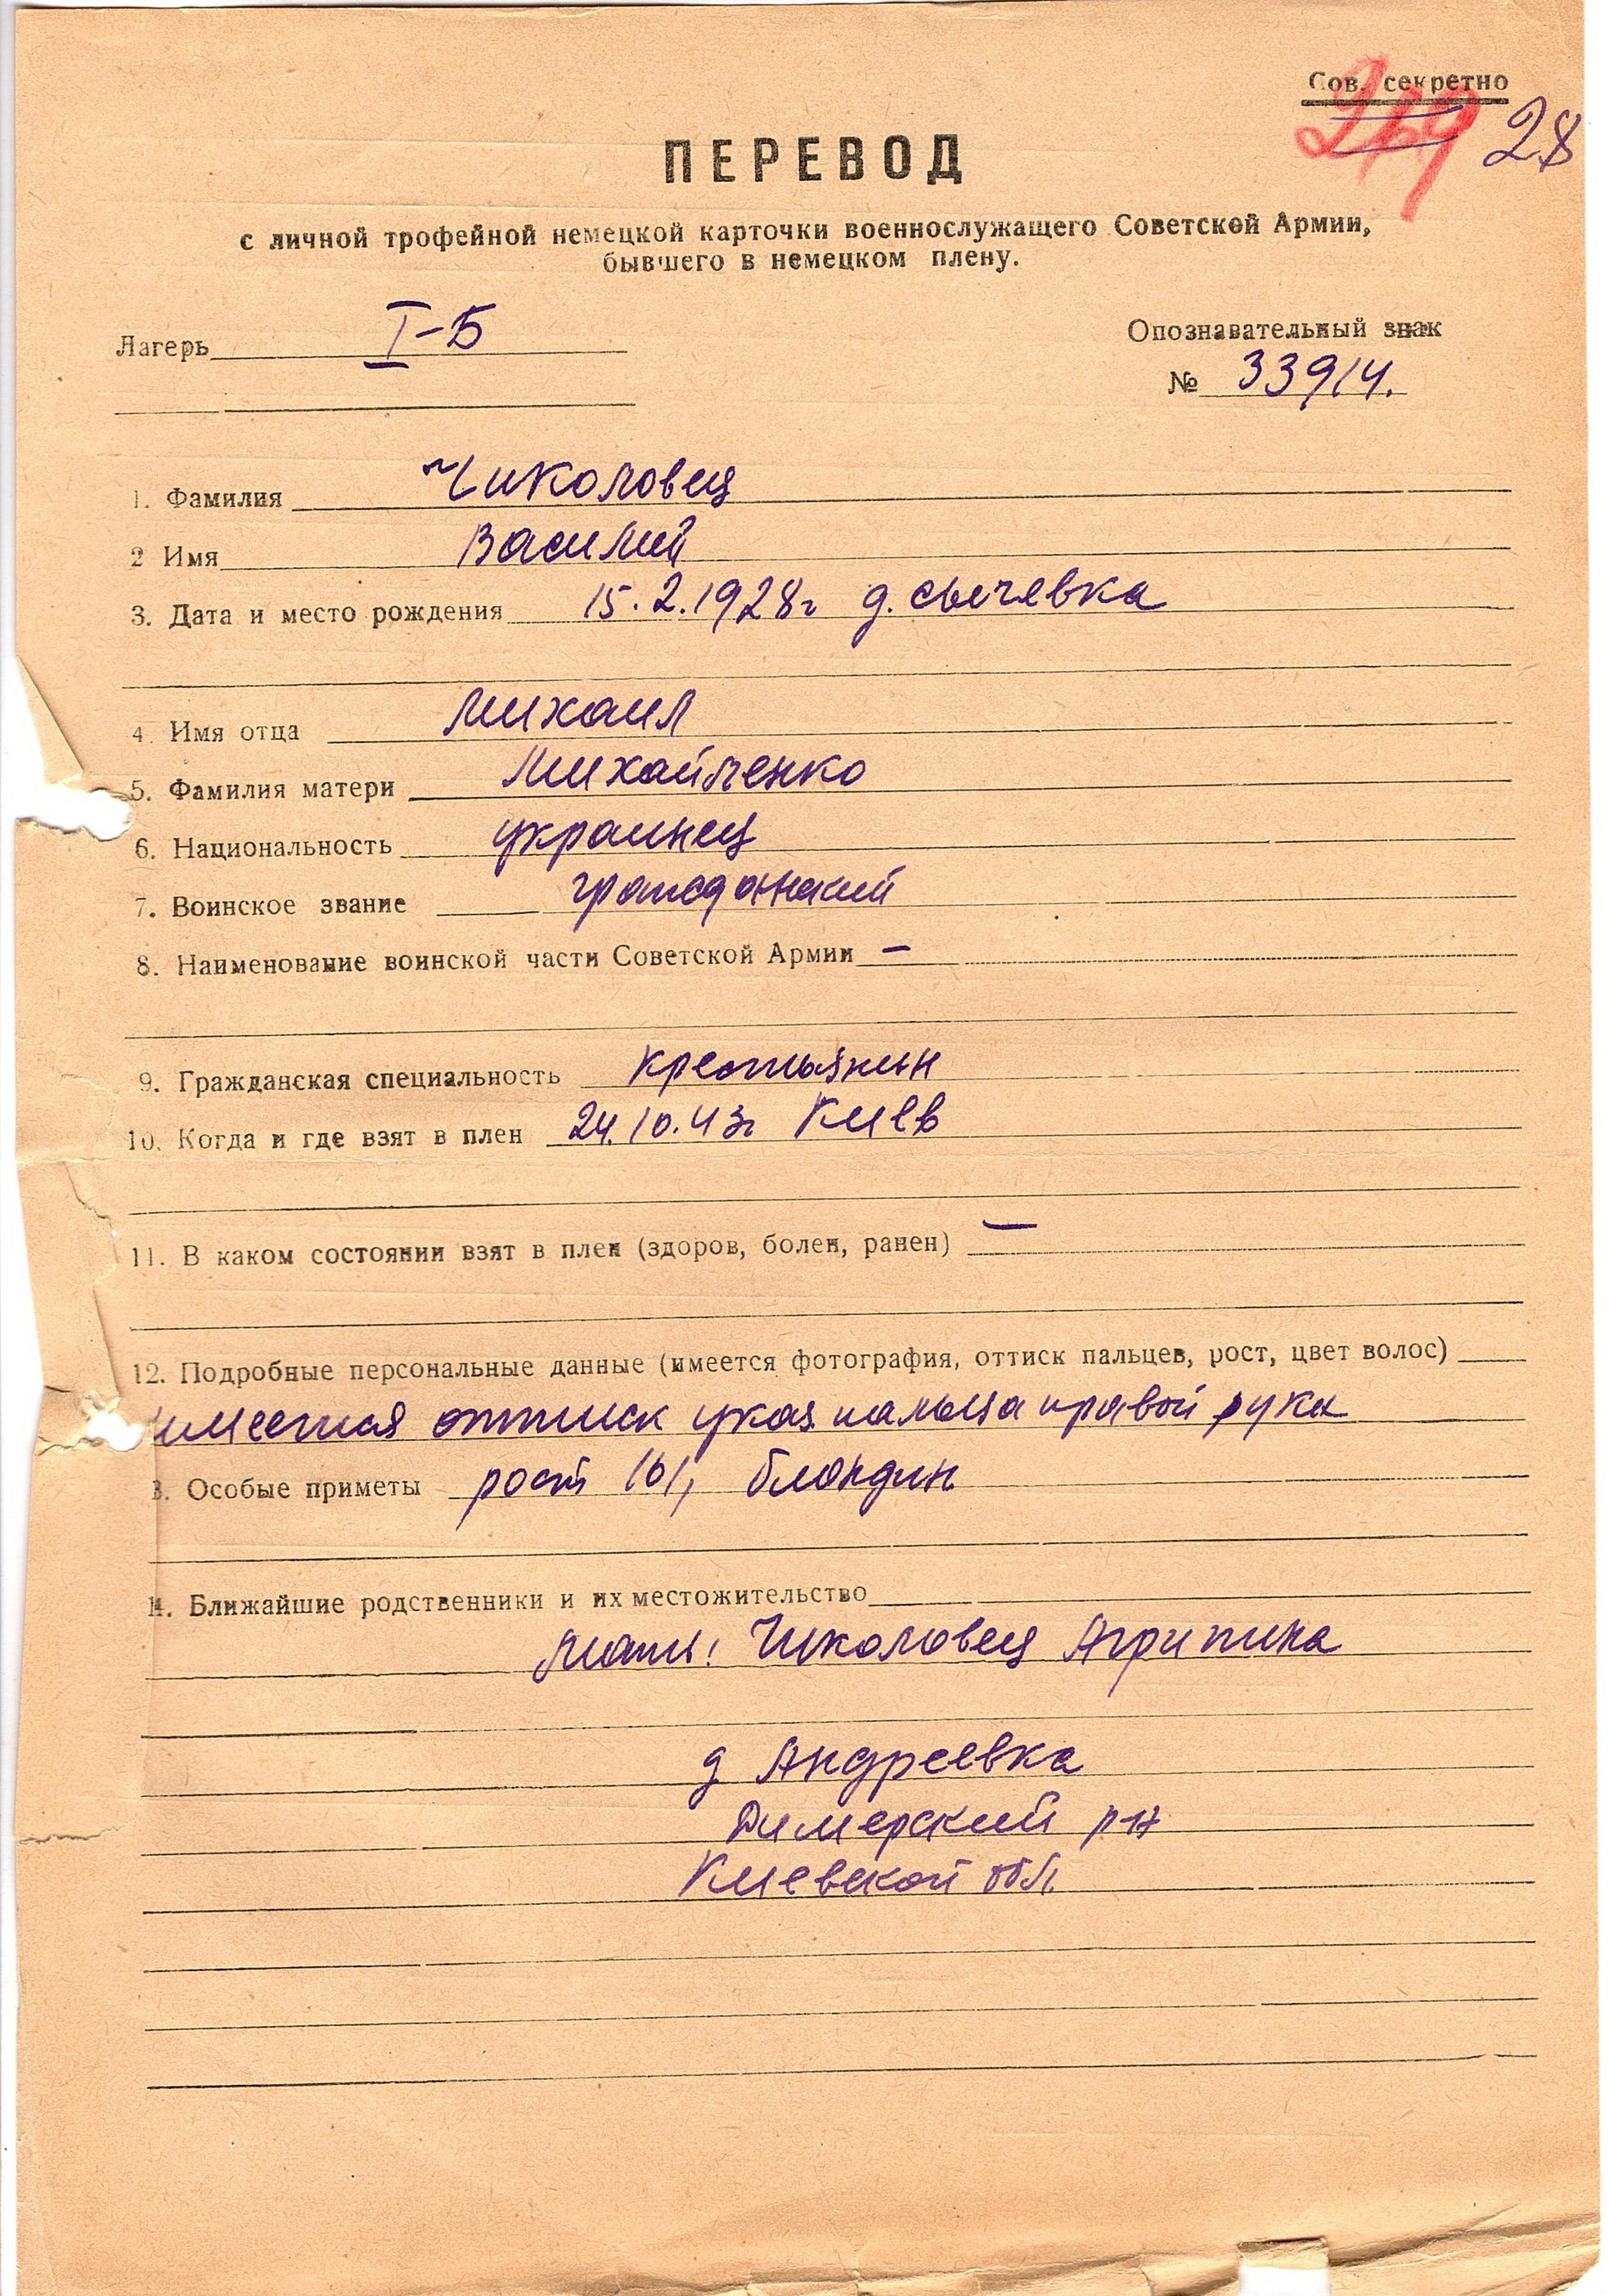 Сов. секретно
269 28
ПЕРЕВОД
с личной трофейной немецкой карточки военнослужащего Советской Армии,
бывшего в немецком плену.
Лагерь I-Б
Опознавательный знак
№ 33914.
1. Фамилия Чиколовец
2 Имя Василий
3. Дата и место рождения 15.2.1928г д. Сычевка
4. Имя отца Михаил
5. Фамилия матери Михайленко
6. Национальность украинец
7. Воинское звание гражданский
8. Наименование воинской части Советской Армии –
9. Гражданская специальность крестьянин
10. Когда и где взят в плен 24.10.43г Киев
11. В каком состоянии взят в плен (здоров, болен, ранен) –
12. Подробные персональные данные (имеется фотография, оттиск пальцев, рост, цвет волос)
имеется оттиск указ пальца правой руки
3. Особые приметы рост 161, блондин
14. Ближайшие родственники и их местожительство
Мать: Чиколовец Агрипина
д Андреевка
Димерский р-н
Киевской обл.